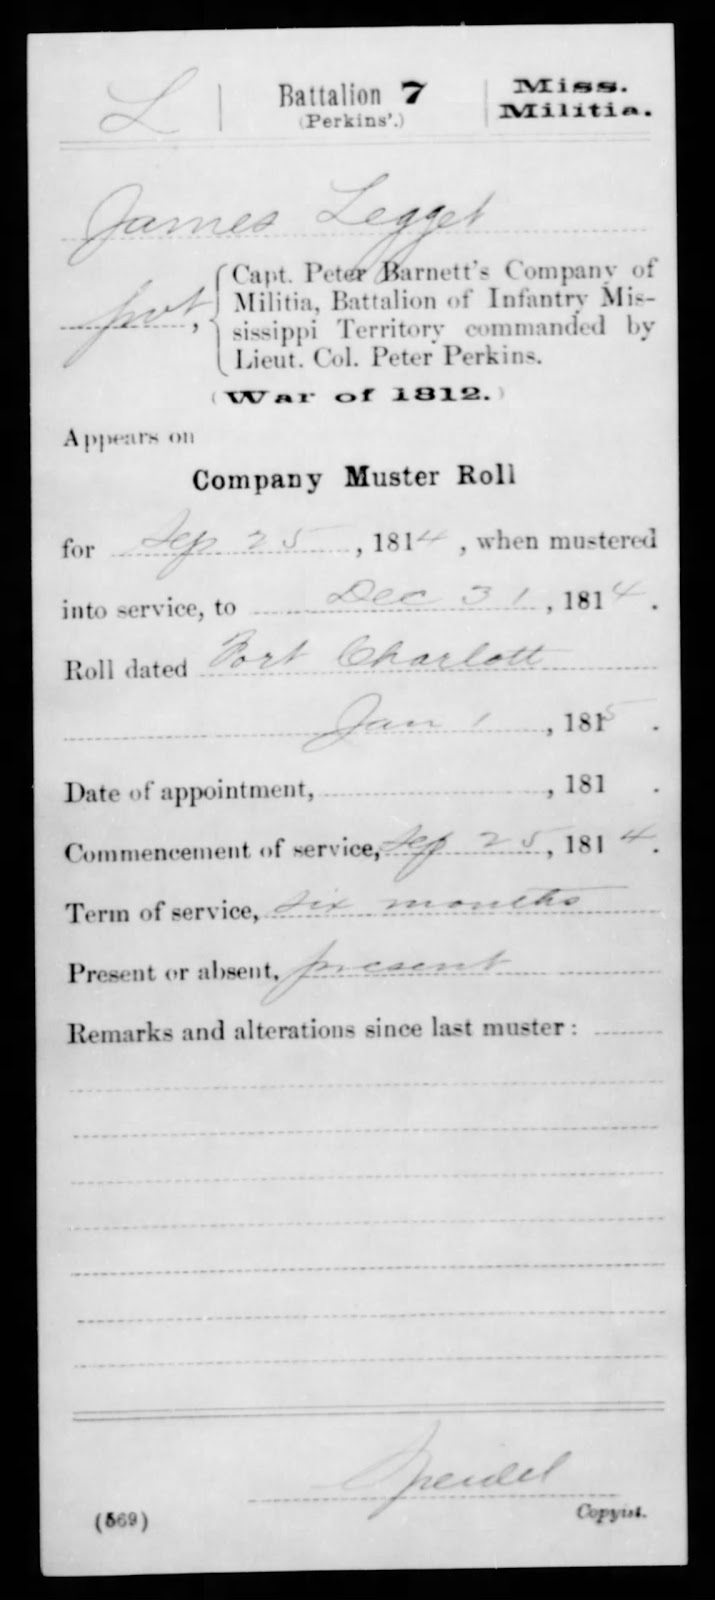 L | Battalion 7 | Miss.
(Perkins'.) Militia.
James Legget
pvt, { Capt. Peter Barnett's Company of
Militia, Battalion of Infantry Mis-
sissippi Territory commanded by
Lieut. Col. Peter Perkins.
(War of 1812.)
Appears on
Company Muster Roll
for Sep 25, 1814, when mustered
into service, to Dec 31, 1814.
Roll dated Fort Charlott
Jan 1, 1815.
Date of appointment, , 181 .
Commencement of service, Sep 25, 1814.
Term of service, six months
Present or absent, present
Remarks and alterations since last muster:
Speidel
(569) Copyist.